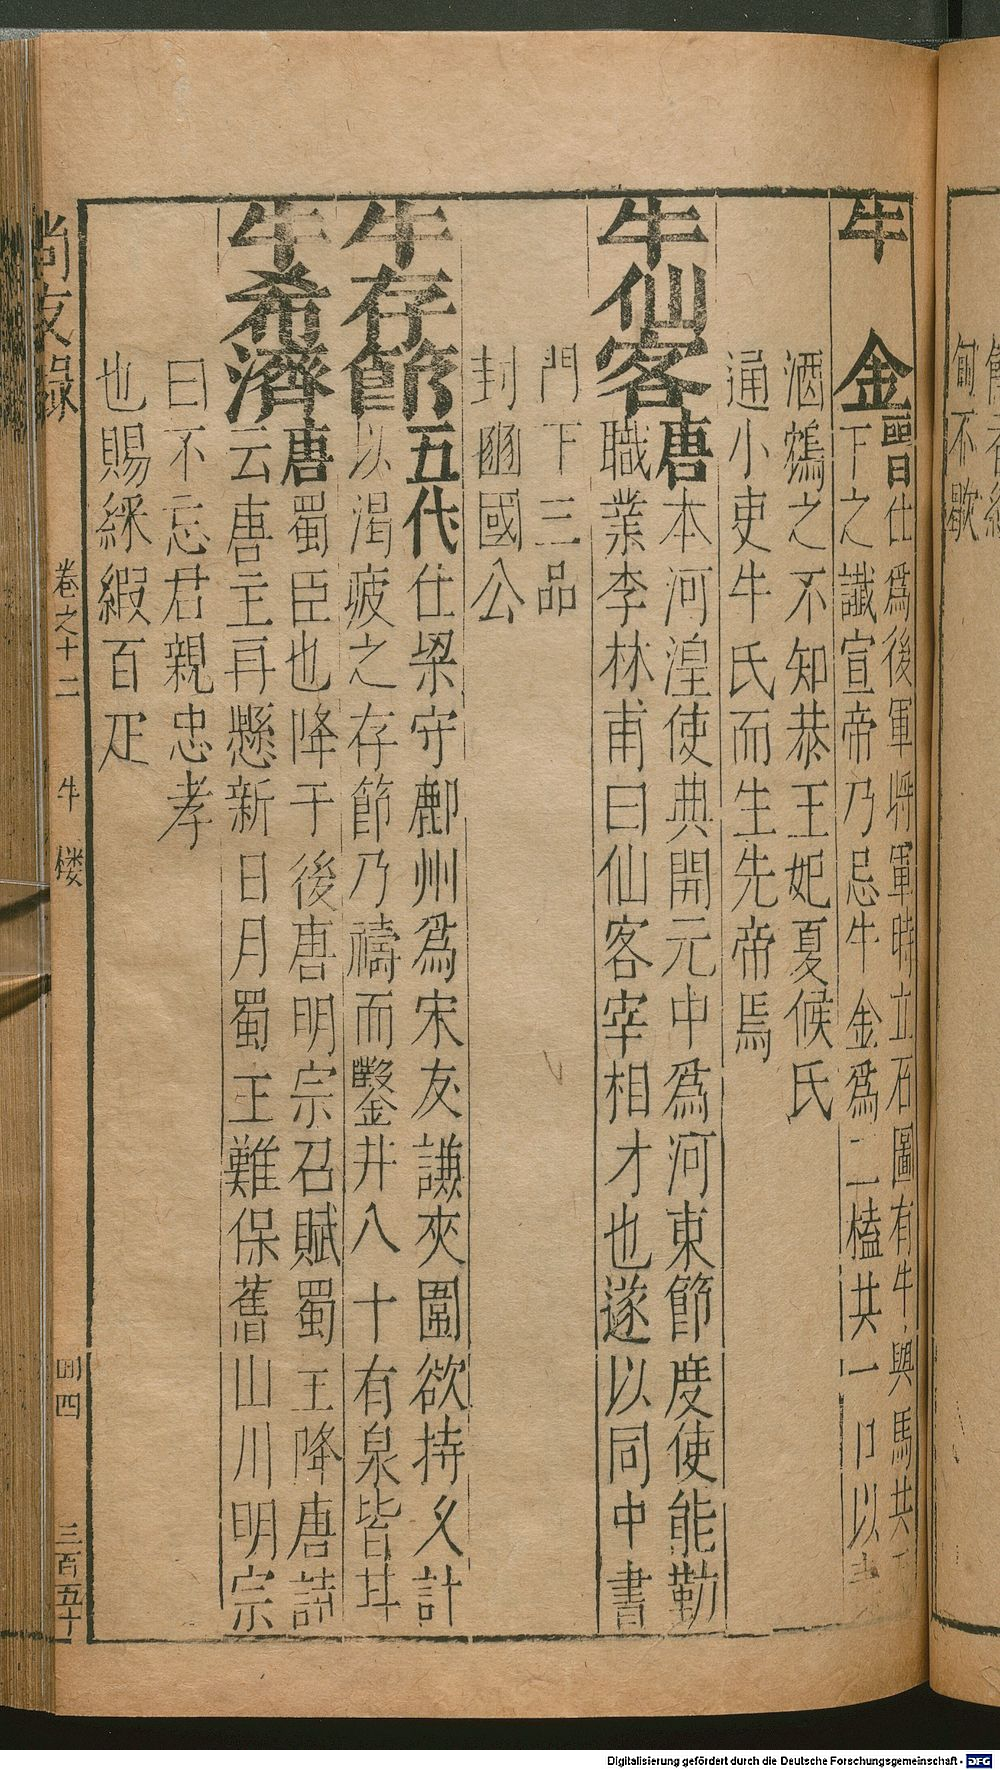 牛　金晉仕爲後軍將軍時立石圖有牛與馬共
下之讖宣帝乃忌牛金爲二榼共一口以
酒鴆之不知恭王妃夏候氏
通小吏牛氏而生先帝焉
牛仙客唐本河湟使典開元中爲河東節度使能勤
職業李林甫曰仙客宰相才也遂以同中書
門下三品
封豳國公
牛存節五代仕梁守鄜州爲宋友謙夾圍欲持久計
以渴疲之存節乃禱而鑿井八十有泉皆甘
牛希濟唐蜀臣也降于後唐明宗召賦蜀王降唐詩
云唐主再懸新日月蜀王難保舊山川明宗
曰不忘君親忠孝
也賜綵緞百疋
尚友錄　卷之十二　牛　楼　四　三百五十
匍不歇